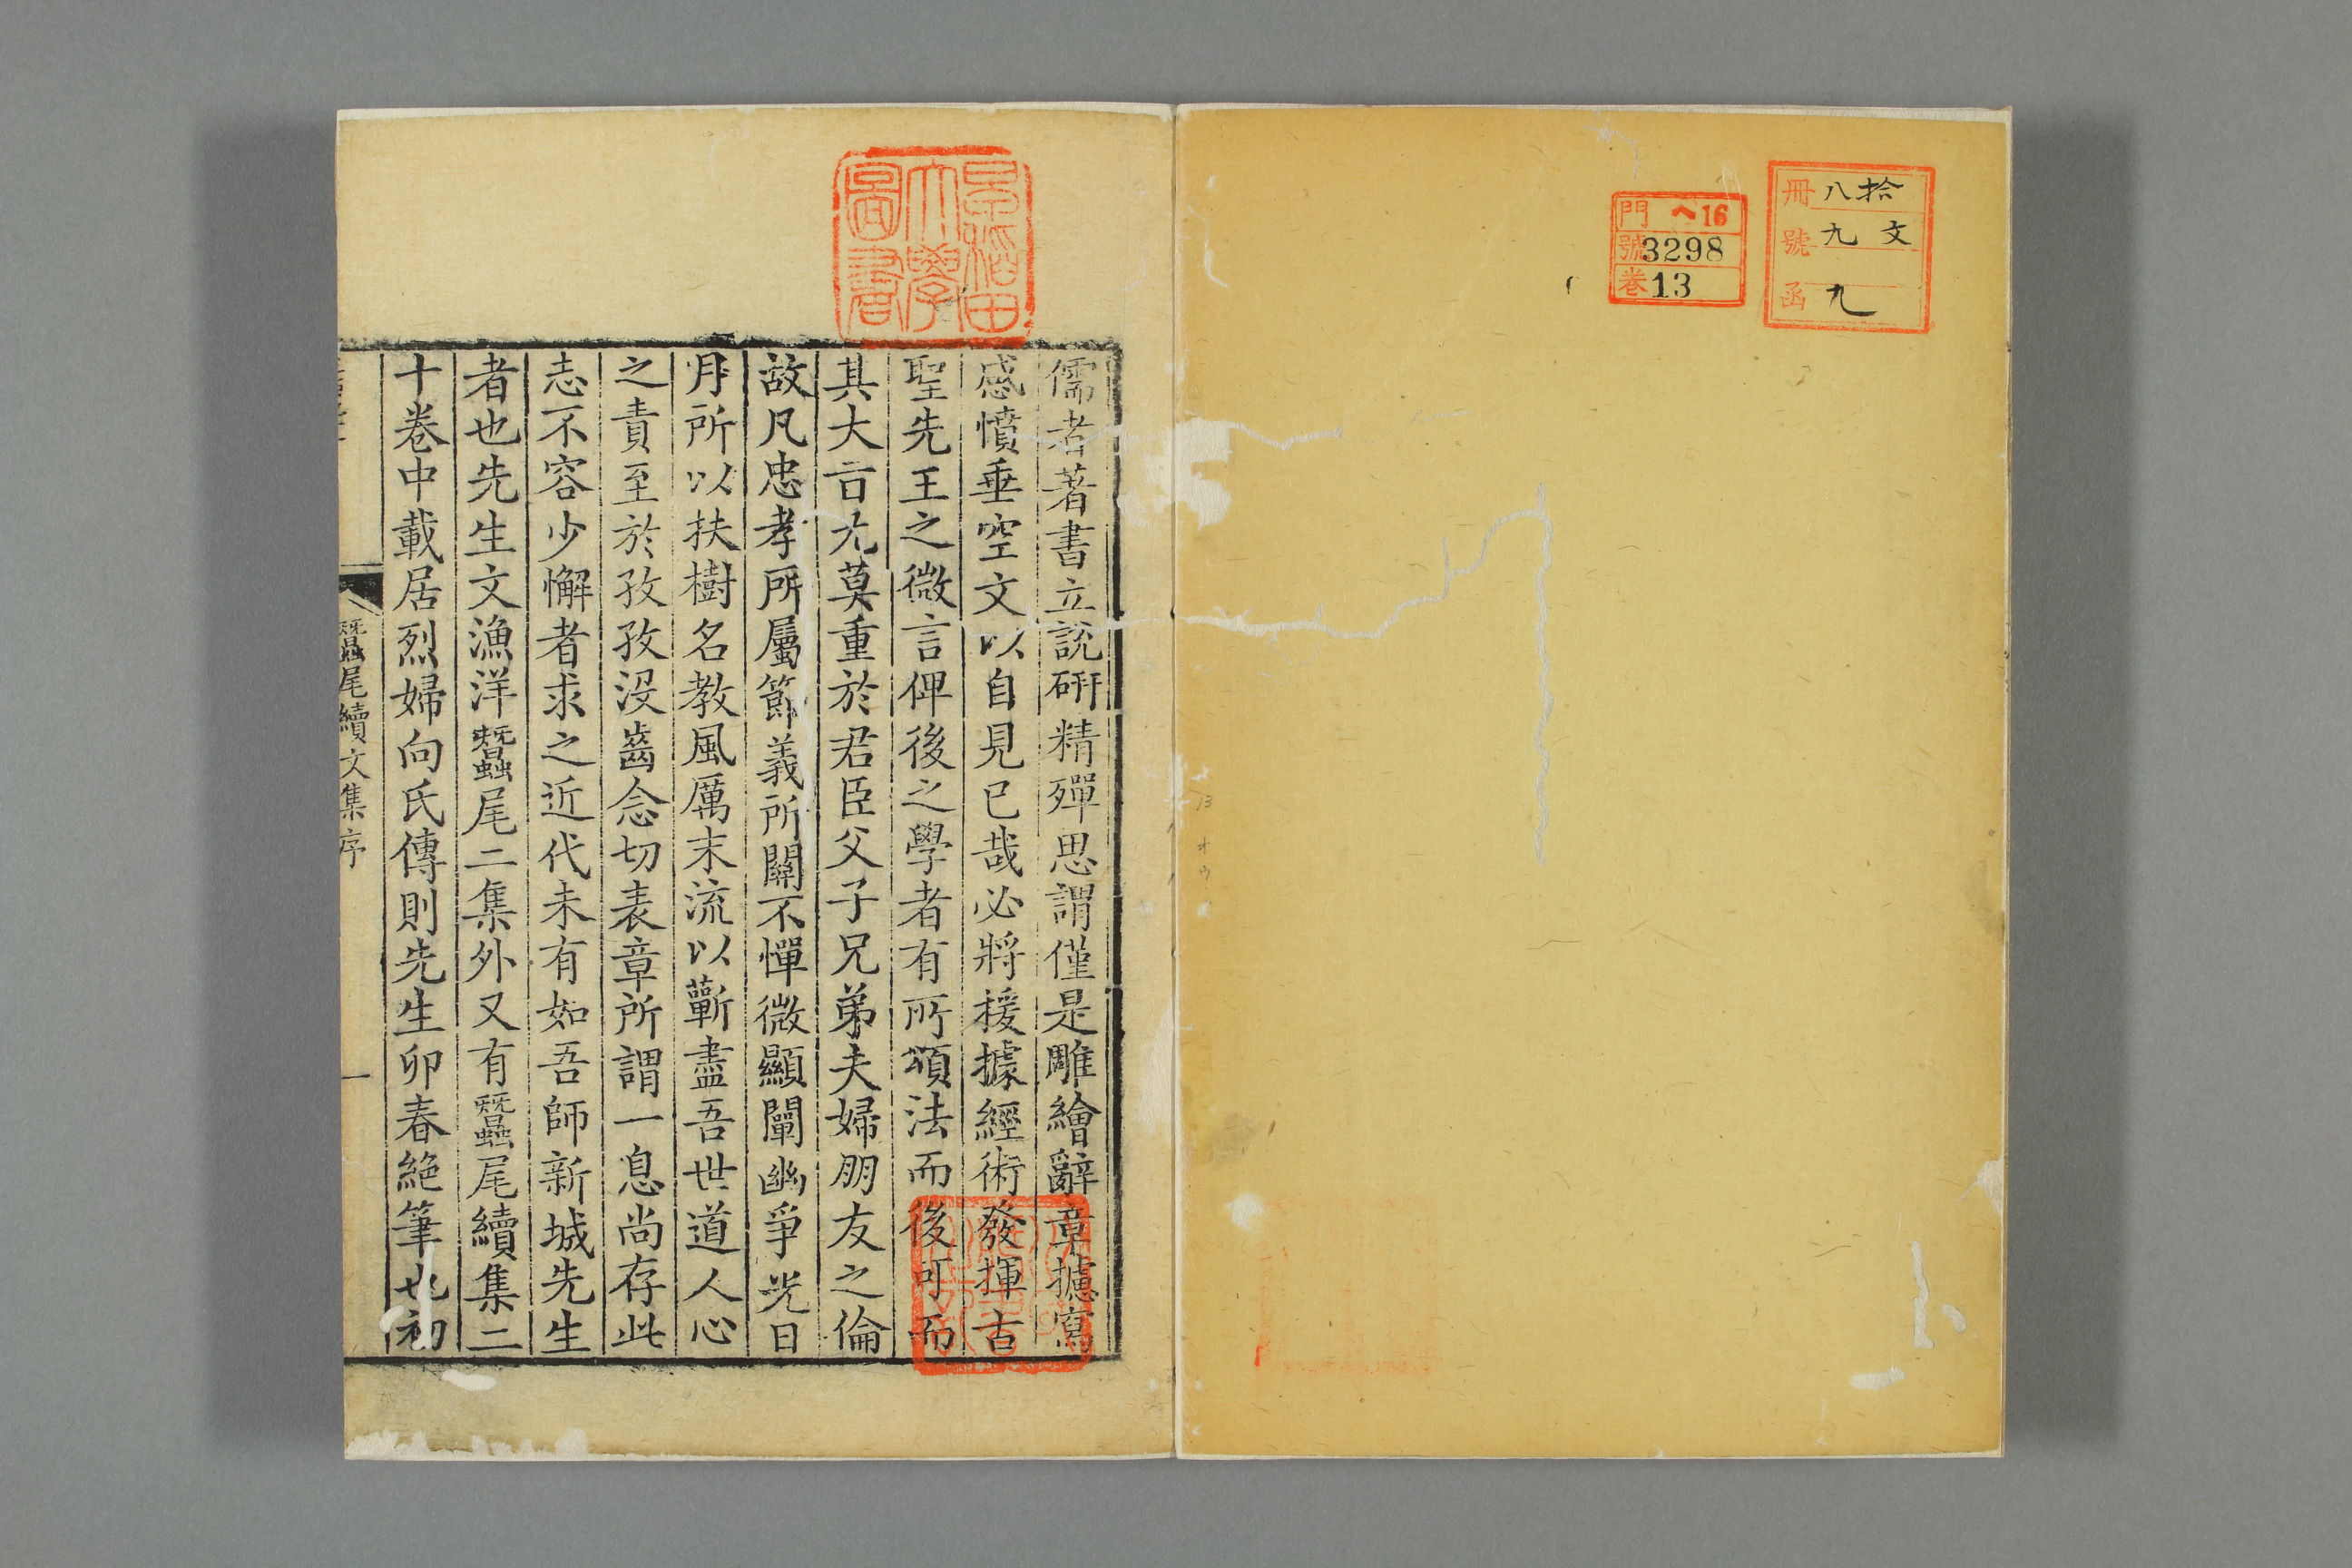 冊 八拾
號 九 文
函 九
門 ヘ16
號3298
卷13
早稻田
大學
圖書
儒者著書立説硏精殫思謂僅是雕繪辭章攄寫
感憤垂空文以自見已哉必將援據經術發揮古
聖先王之微言俾後之學者有所頌法而後可而
其大言尤莫重於君臣父子兄弟夫婦朋友之倫
故凡忠孝所屬節義所關不憚微顯闡幽爭光日
月所以扶樹名教風厲末流以蘄盡吾世道人心
之責至於孜孜没齒念切表章所謂一息尚存此
志不容少懈者求之近代未有如吾師新城先生
者也先生文漁洋蠶尾二集外又有蠶尾續集二
十卷中載居烈婦向氏傳則先生卯春絶筆也初
蠶尾續文集序
一